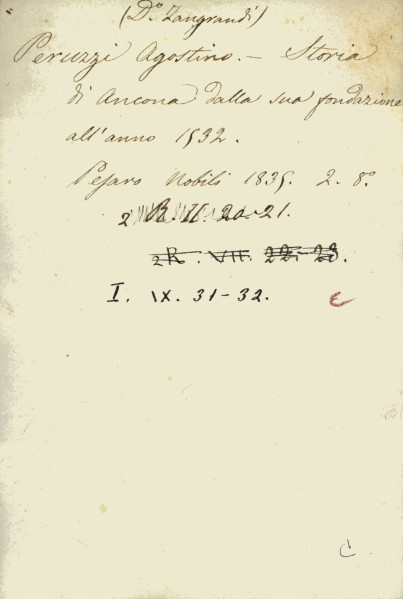 (D.º Zangrandi)
Peruzzi Agostino. – Storia
di Ancona dalla sua fondazione
all'anno 1532.
Pesaro Nobili 1835. 2. 8.º
2 R. II. 20-21.
2 R. VII. 22-23.
I. IX. 31-32.
C
C.